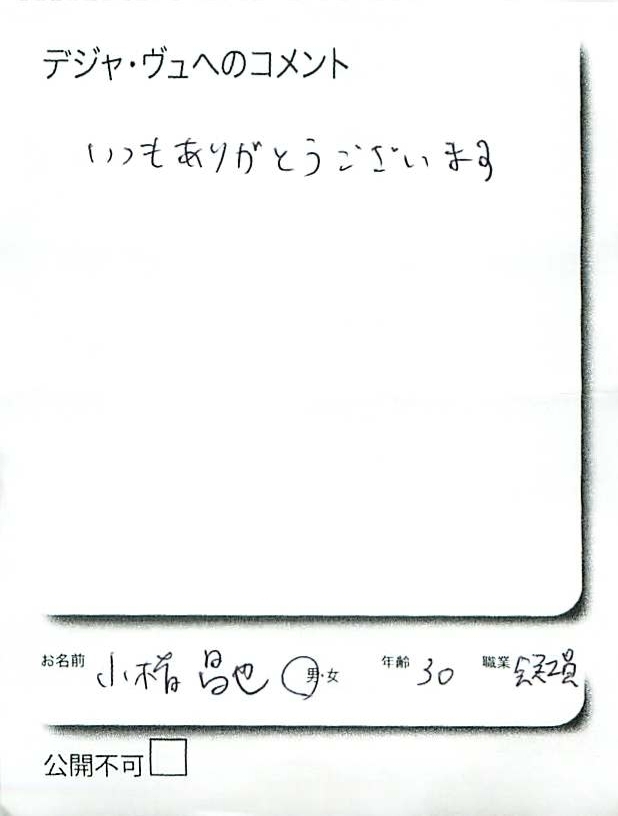 デジャ・ヴュへのコメント
いつもありがとうございます
お名前 小椿 昌也 男・女 年齢 30 職業
公開不可